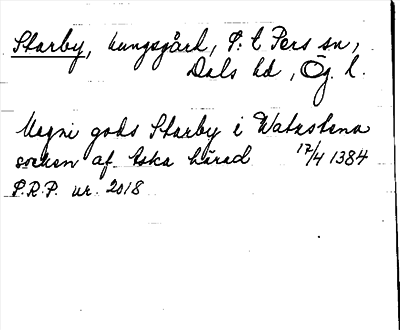 Starby, kungsgård, S:t Pers sn,
Dals hd, Ög. l.
Magni gods Starby i Watzstena
socken af Aska härad 17/4 1384
P.R.P. nr. 2018